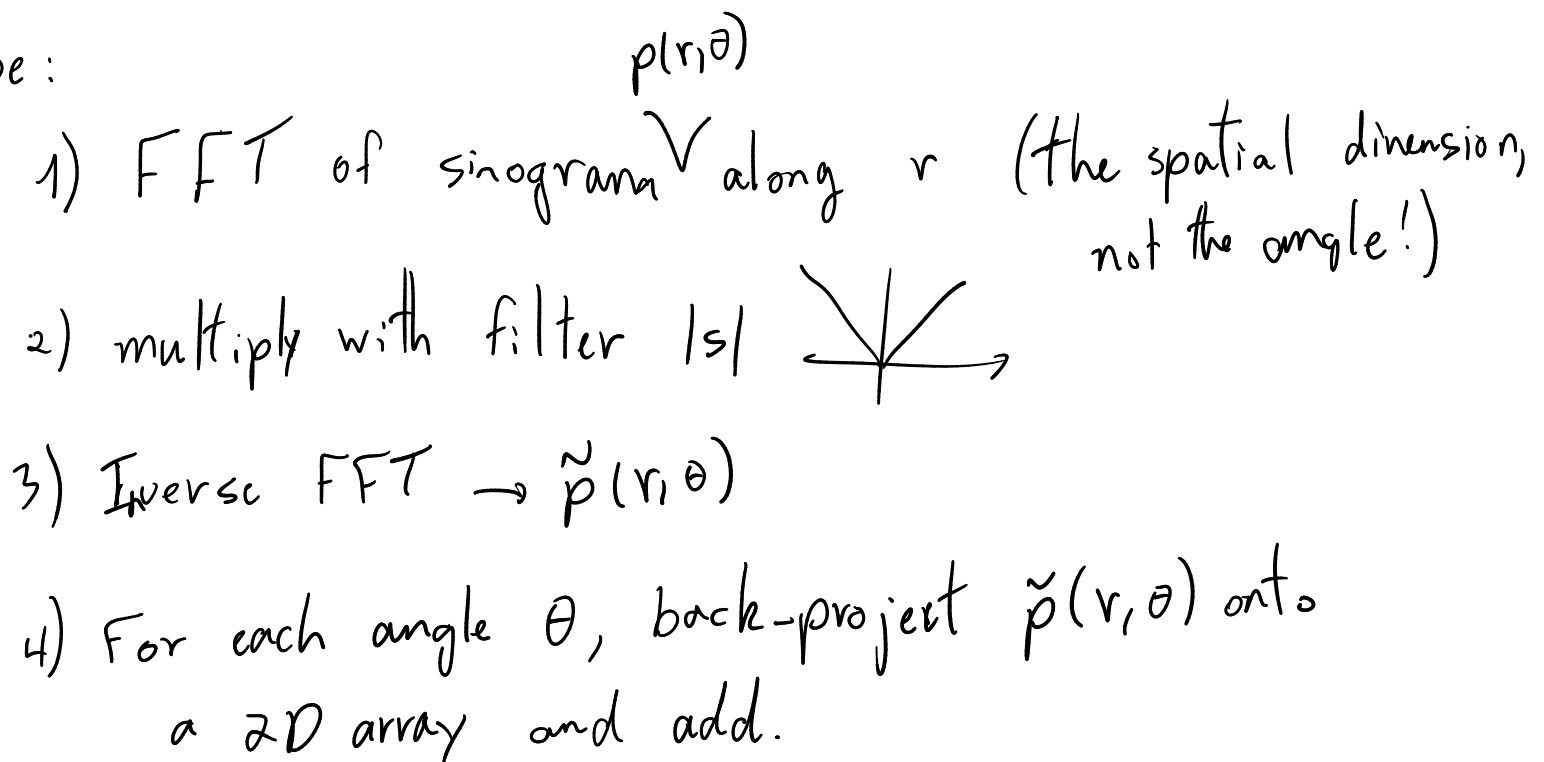 p(r,θ)
1) FFT of sinogram along r (the spatial dimension,
not the angle!)
2) multiply with filter |s|
3) Inverse FFT → p̃(r,θ)
4) For each angle θ, back-project p̃(r,θ) onto
a 2D array and add.